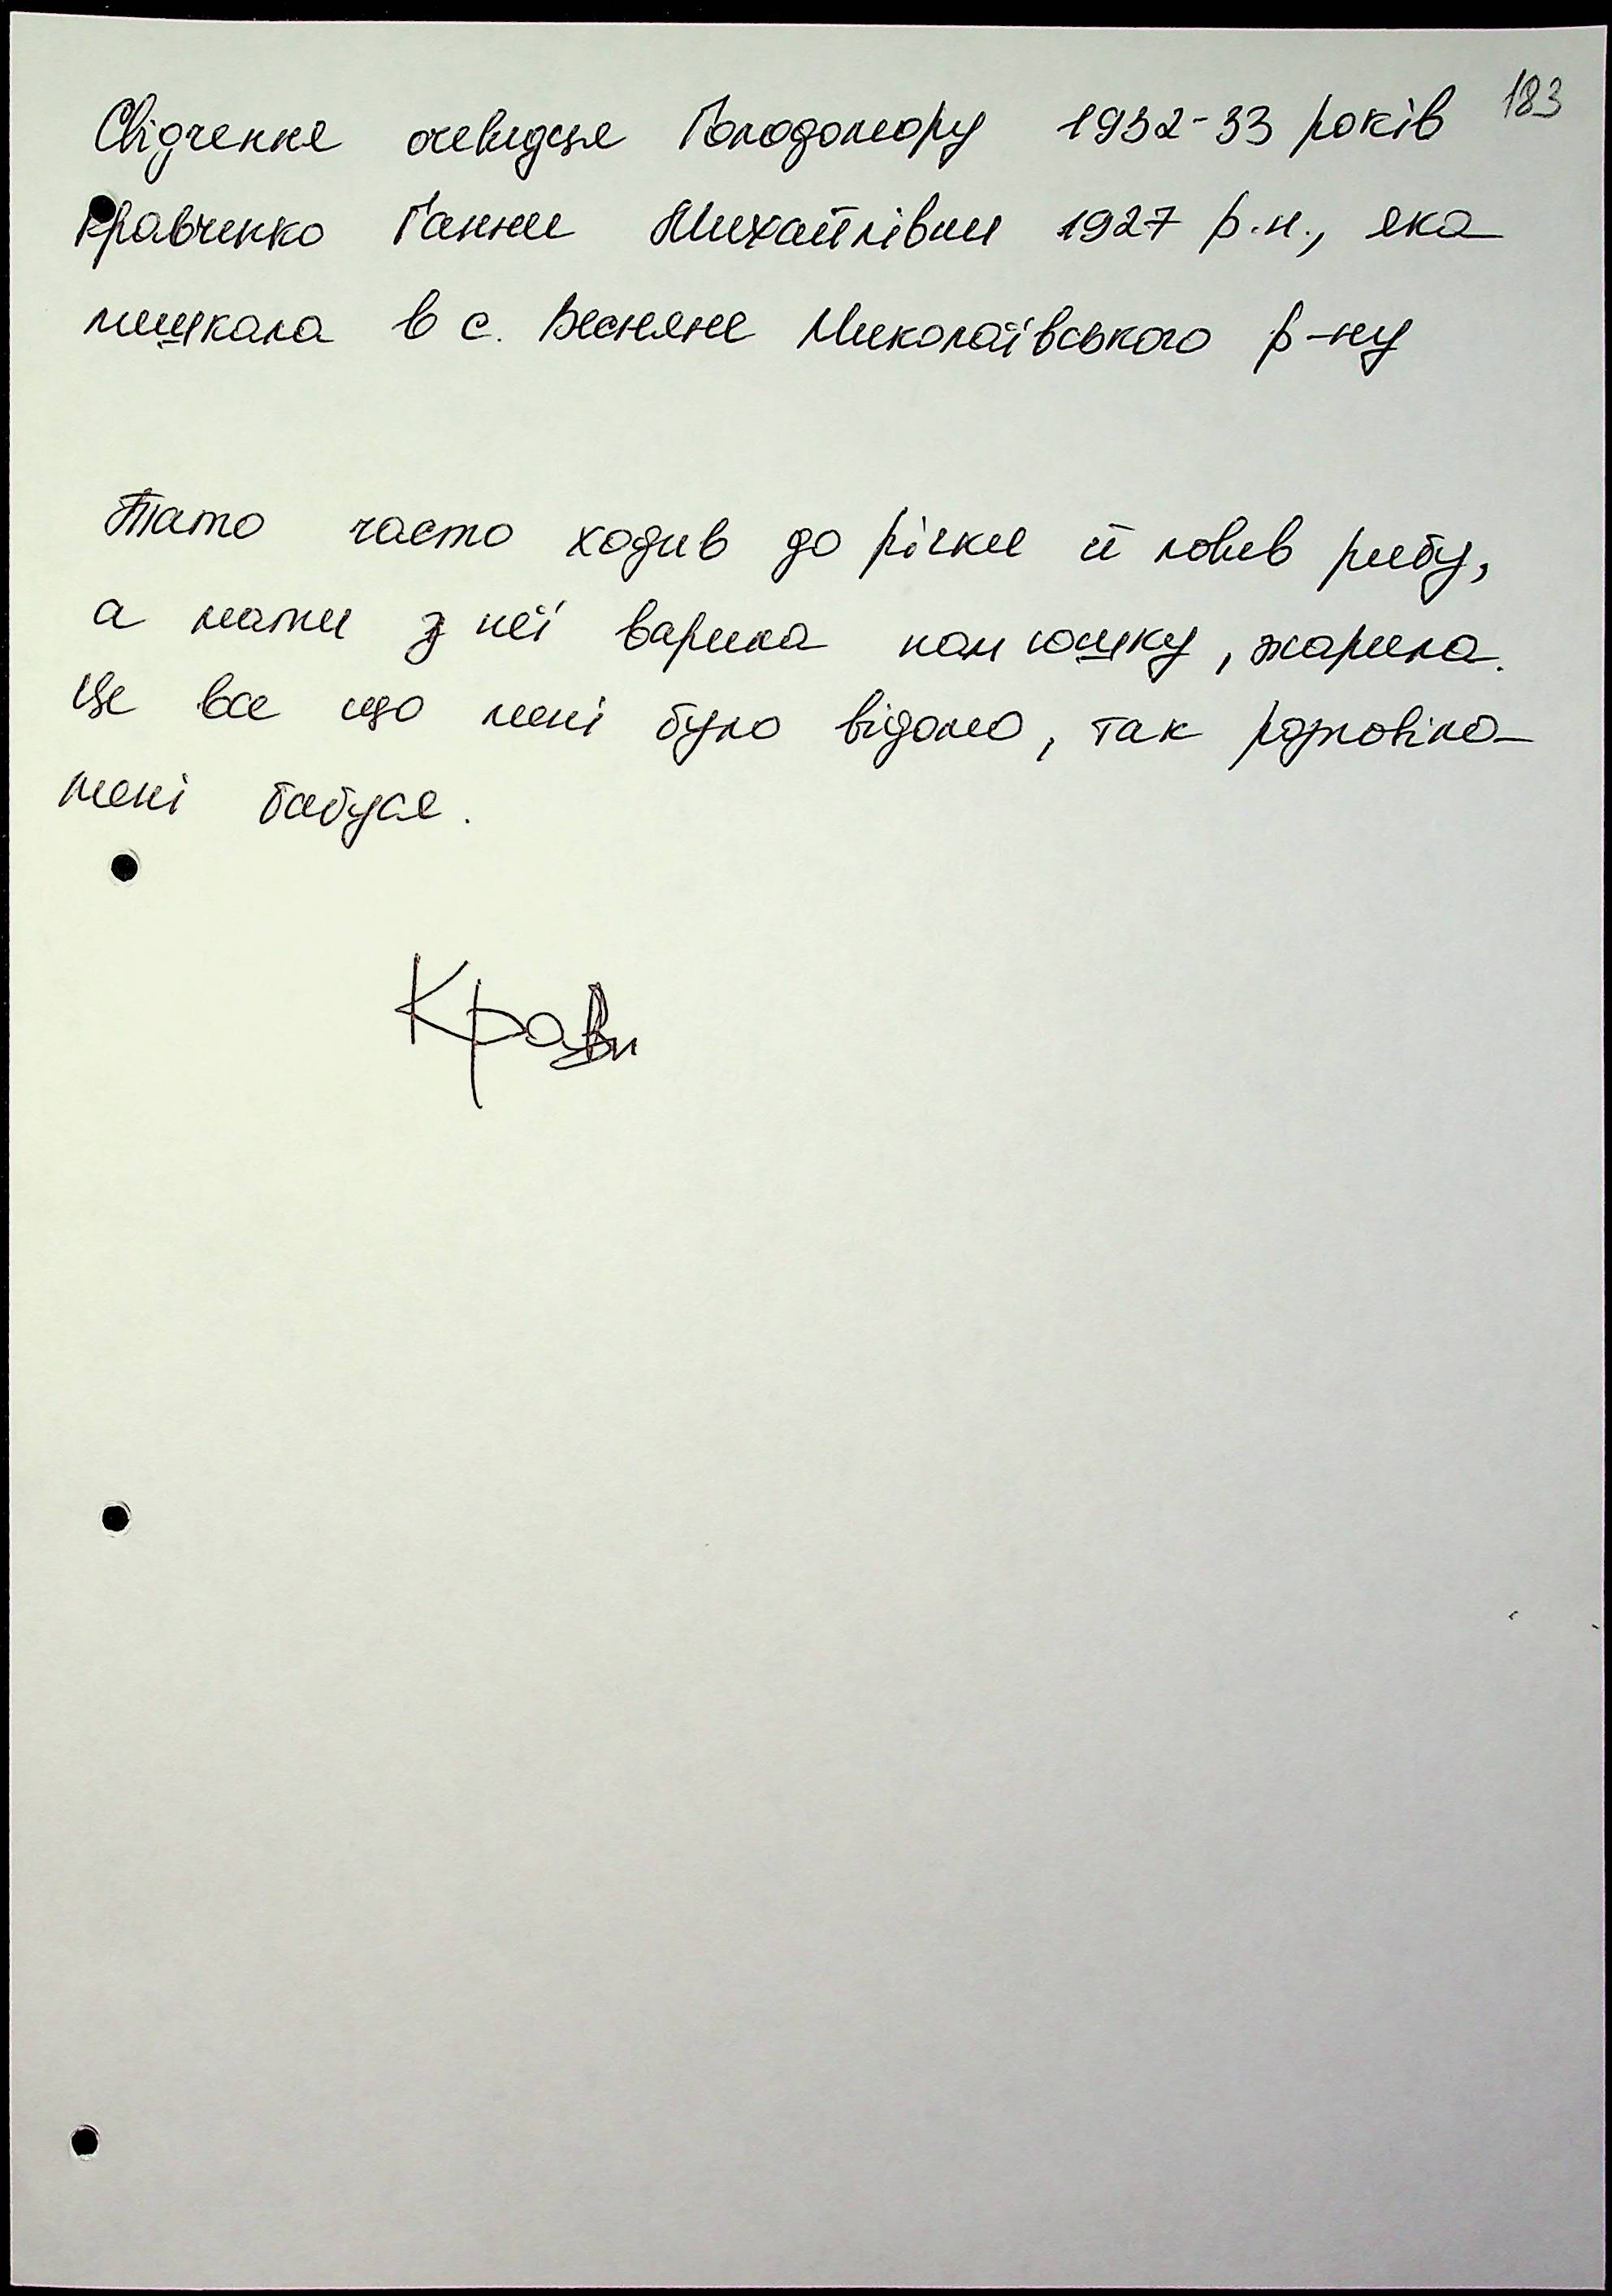 183
Свідчення очевидця Голодомору 1932-33 років
Кравченко Ганни Михайлівни 1927 р.н., яка
мешкала в с. Весняне Миколаївського р-ну
Тато часто ходив до річки й ловив рибу,
а мати з неї варила нам юшку, жарила.
Це все що мені було відомо, так розповіла
мені бабуся.
Кравч